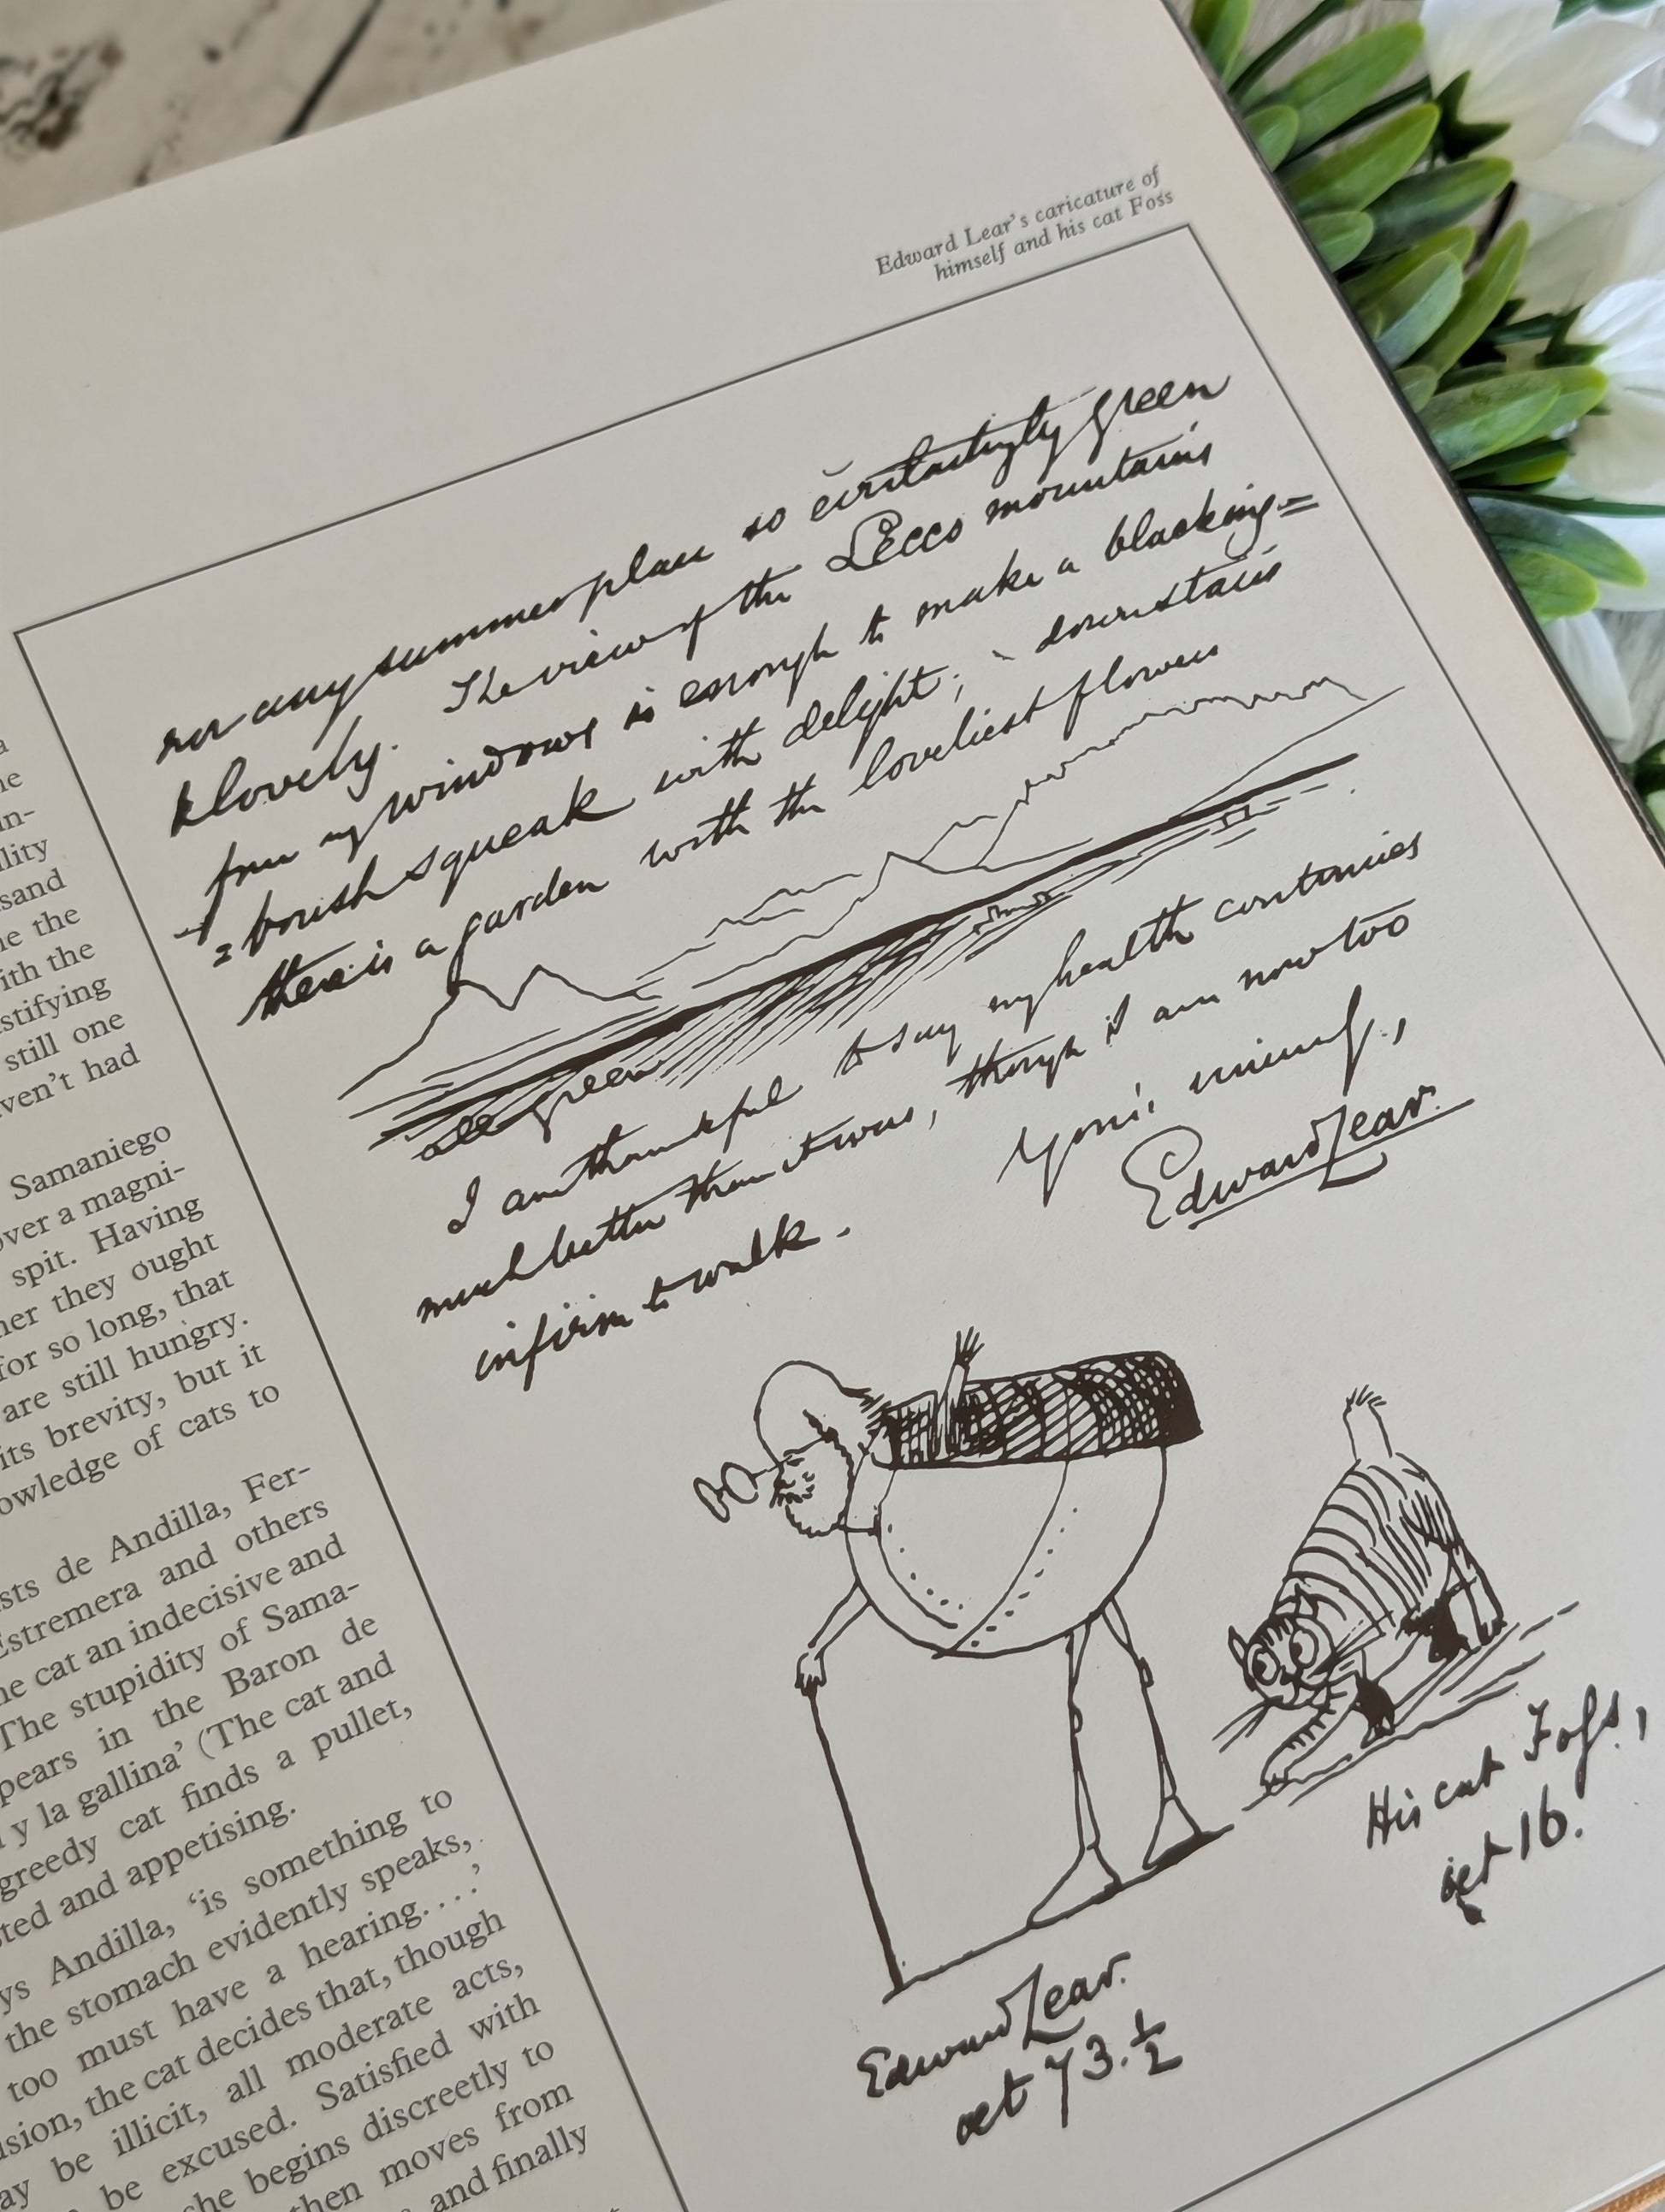 Edward Lear's caricature of
himself and his cat Foss
nor any summer place so everlastingly green
& lovely. The view of the Lecco mountains
from my windows is enough to make a blacking=
=brush squeak with delight; downstairs
there is a garden with the loveliest flowers
all green
I am thankful to say my health continues
much better than it was, though I am now too
infirm to walk.
Yours sincerely,
Edward Lear.
His cat Foss,
æt 16.
Edward Lear.
æt 73.½
a
ne
in-
ility
sand
ne the
ith the
stifying
still one
ven't had
Samaniego
over a magni-
spit. Having
her they ought
for so long, that
are still hungry.
its brevity, but it
owledge of cats to
sts de Andilla, Fer-
Estremera and others
he cat an indecisive and
The stupidity of Sama-
pears in the Baron de
y la gallina' (The cat and
greedy cat finds a pullet,
sted and appetising.
ys Andilla, 'is something to
the stomach evidently speaks,
too must have a hearing....'
sion, the cat decides that, though
ay be illicit, all moderate acts,
be excused. Satisfied with
she begins discreetly to
then moves from
and finally